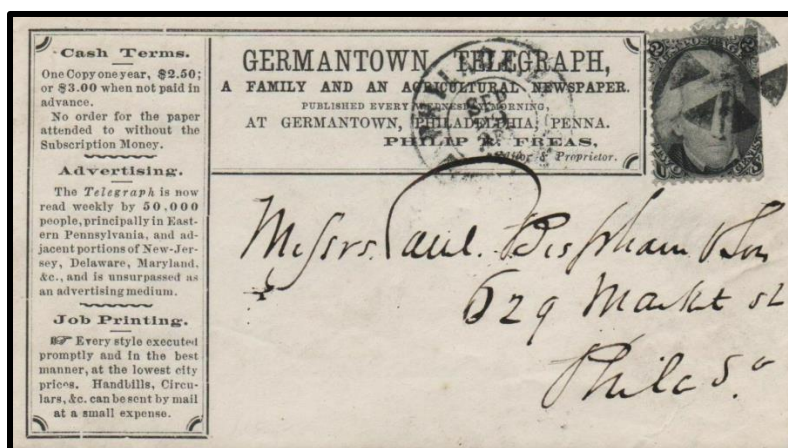 Cash Terms.
One Copy one year, $2.50;
or $3.00 when not paid in
advance.
No order for the paper
attended to without the
Subscription Money.
Advertising.
The Telegraph is now
read weekly by 50,000
people, principally in East-
ern Pennsylvania, and ad-
jacent portions of New-Jer-
sey, Delaware, Maryland,
&c., and is unsurpassed as
an advertising medium.
Job Printing.
☞ Every style executed
promptly and in the best
manner, at the lowest city
prices. Handbills, Circu-
lars, &c. can be sent by mail
at a small expense.
GERMANTOWN TELEGRAPH,
A FAMILY AND AN AGRICULTURAL NEWSPAPER.
PUBLISHED EVERY WEDNESDAY MORNING,
AT GERMANTOWN, PHILADELPHIA, PENNA.
PHILIP R. FREAS,
Editor & Proprietor.
SEP
Messrs. Saml. Bispham & Son
629 Market st
Philad.